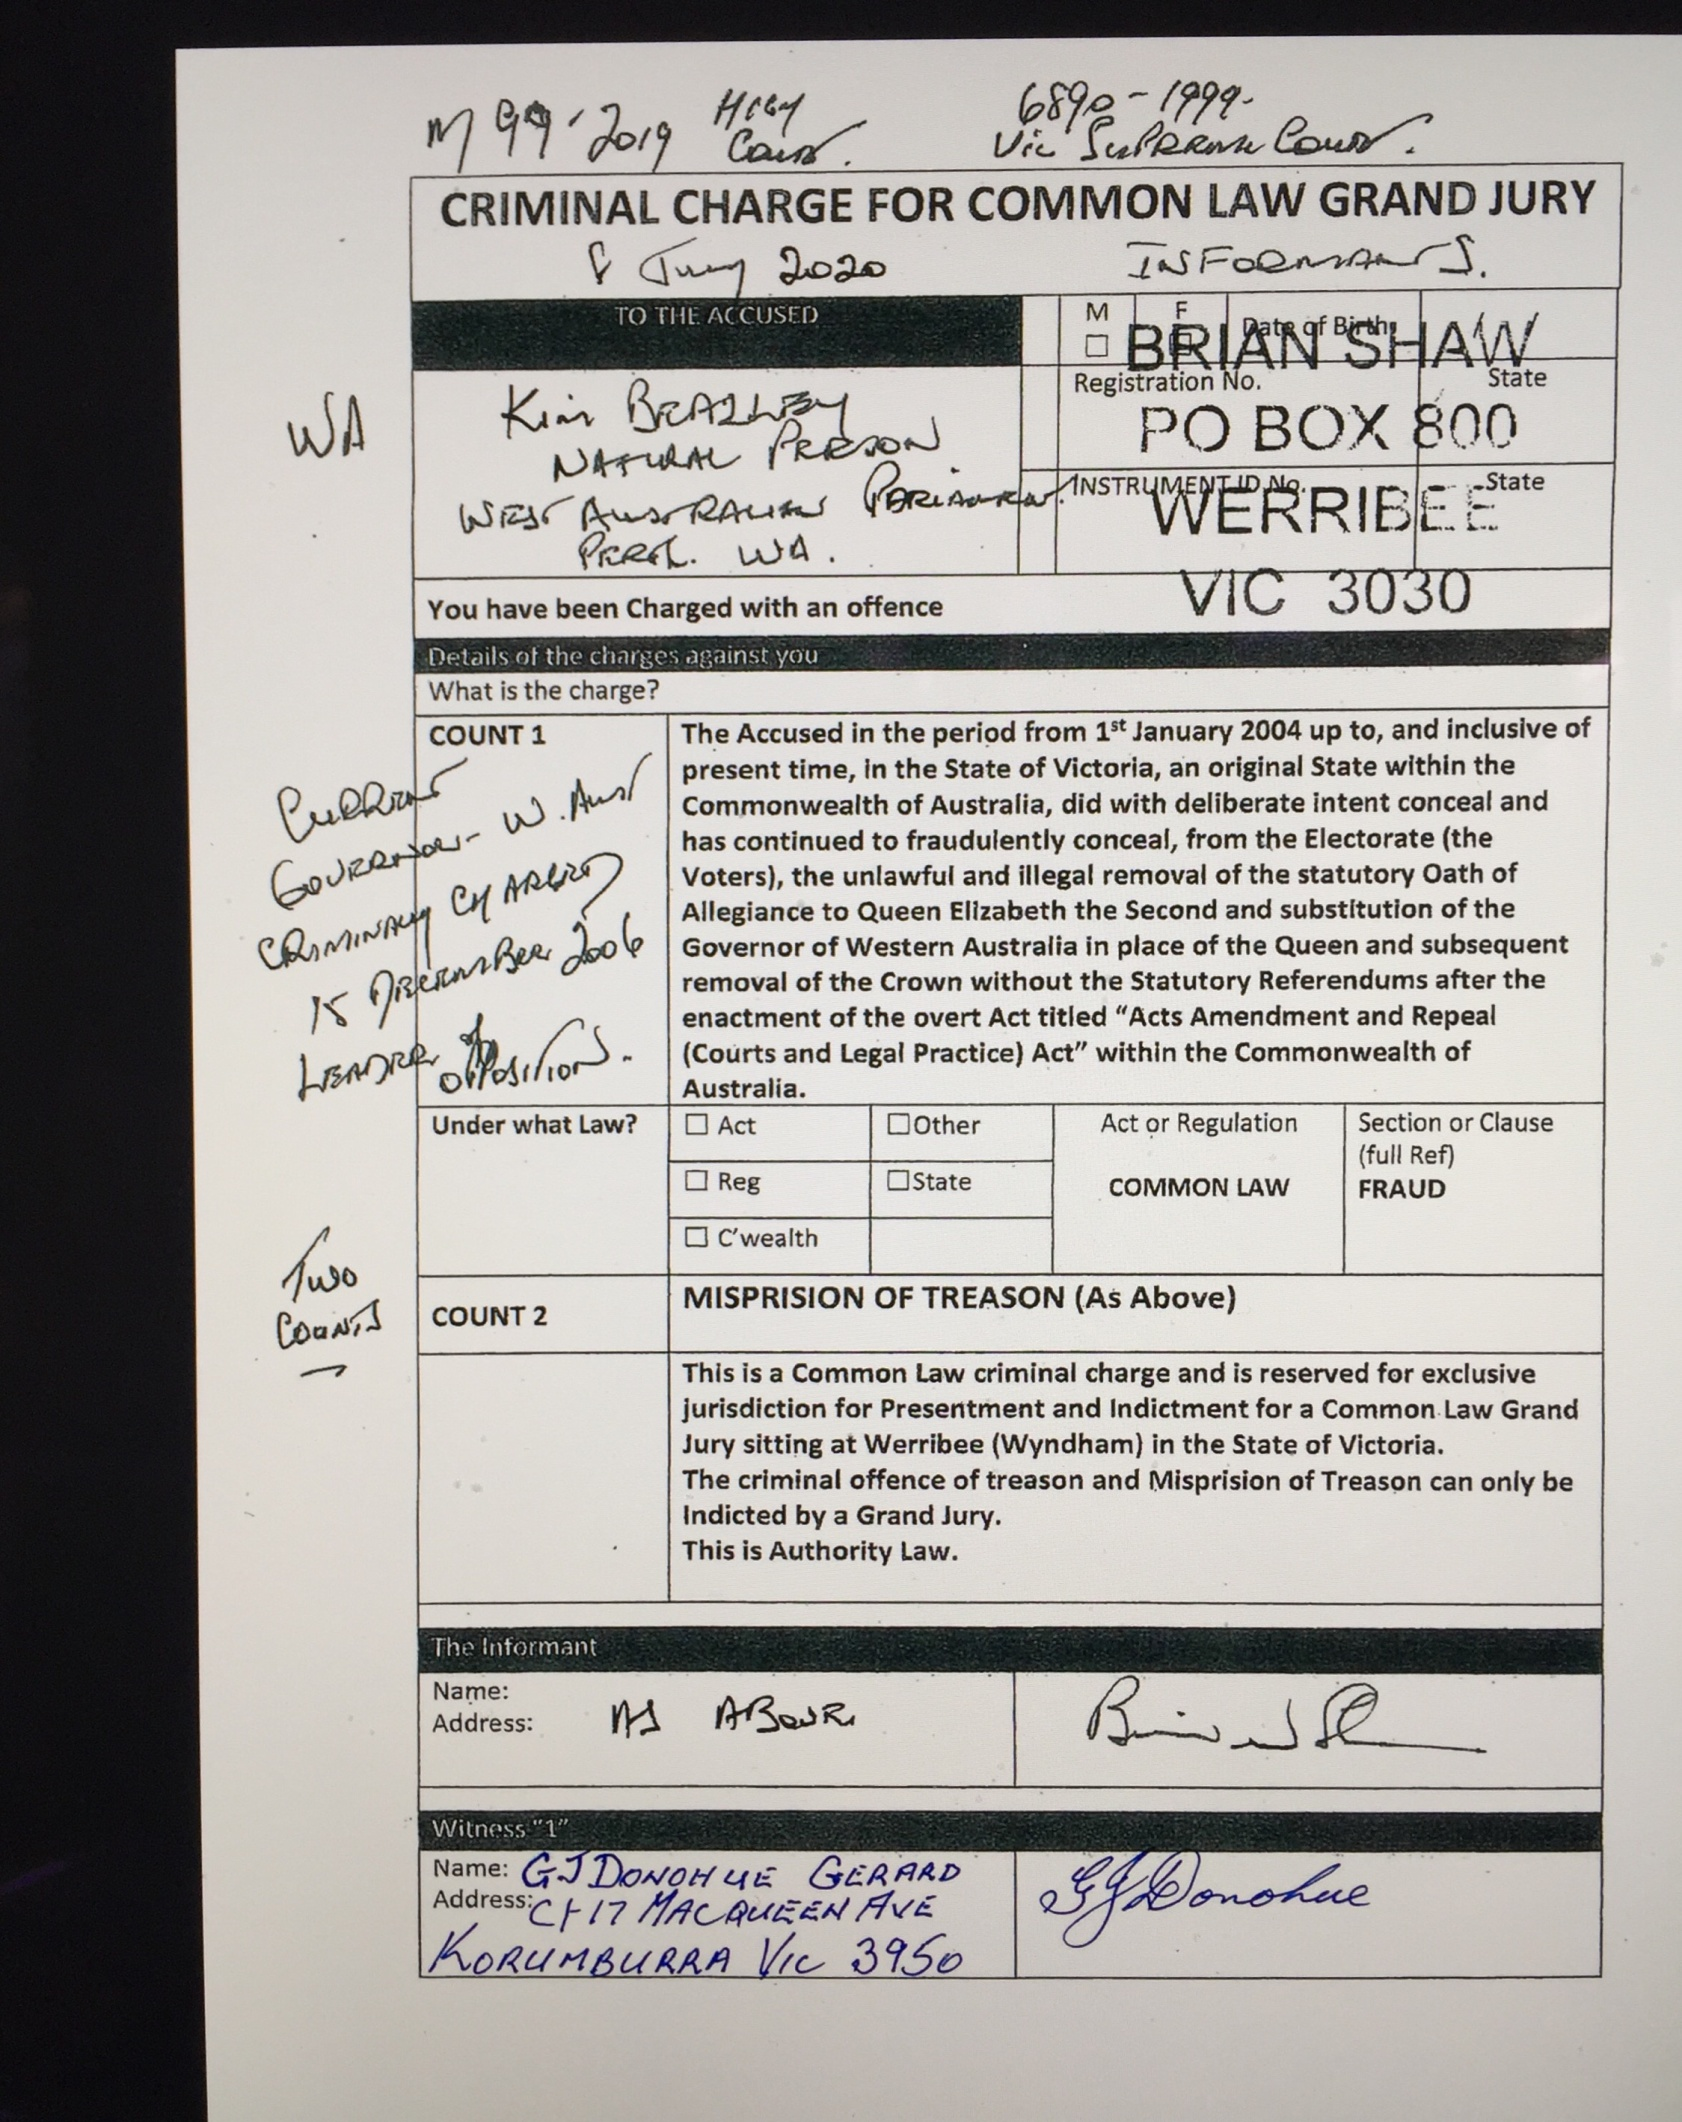 M 99-2019 High Court.
6890-1999.
Vic Supreme Court.
CRIMINAL CHARGE FOR COMMON LAW GRAND JURY
8 July 2020
INFORMANTS.
TO THE ACCUSED
M
F
Date of Birth
BRIAN SHAW
Registration No.
State
PO BOX 800
INSTRUMENT ID No.
State
WERRIBEE
VIC 3030
WA
Kim BEAZLEY
NATURAL PERSON
WEST AUSTRALIAN PARLIAMENT.
PERTH. WA.
You have been Charged with an offence
Details of the charges against you
What is the charge?
COUNT 1
CURRENT
GOVERNOR - W. Aust
CRIMINALLY CHARGED
15 DECEMBER 2006
LEADER of
OPPOSITION.
The Accused in the period from 1st January 2004 up to, and inclusive of
present time, in the State of Victoria, an original State within the
Commonwealth of Australia, did with deliberate intent conceal and
has continued to fraudulently conceal, from the Electorate (the
Voters), the unlawful and illegal removal of the statutory Oath of
Allegiance to Queen Elizabeth the Second and substitution of the
Governor of Western Australia in place of the Queen and subsequent
removal of the Crown without the Statutory Referendums after the
enactment of the overt Act titled “Acts Amendment and Repeal
(Courts and Legal Practice) Act” within the Commonwealth of
Australia.
Under what Law?
Act
Other
Reg
State
C’wealth
Act or Regulation
COMMON LAW
Section or Clause
(full Ref)
FRAUD
TWO
COUNTS
COUNT 2
MISPRISION OF TREASON (As Above)
This is a Common Law criminal charge and is reserved for exclusive
jurisdiction for Presentment and Indictment for a Common Law Grand
Jury sitting at Werribee (Wyndham) in the State of Victoria.
The criminal offence of treason and Misprision of Treason can only be
Indicted by a Grand Jury.
This is Authority Law.
The Informant
Name:
Address:
AS ABOVE
Witness “1”
Name: GJ DONOHUE GERARD
Address: C/- 17 MACQUEEN AVE
KORUMBURRA VIC 3950
GJ Donohue